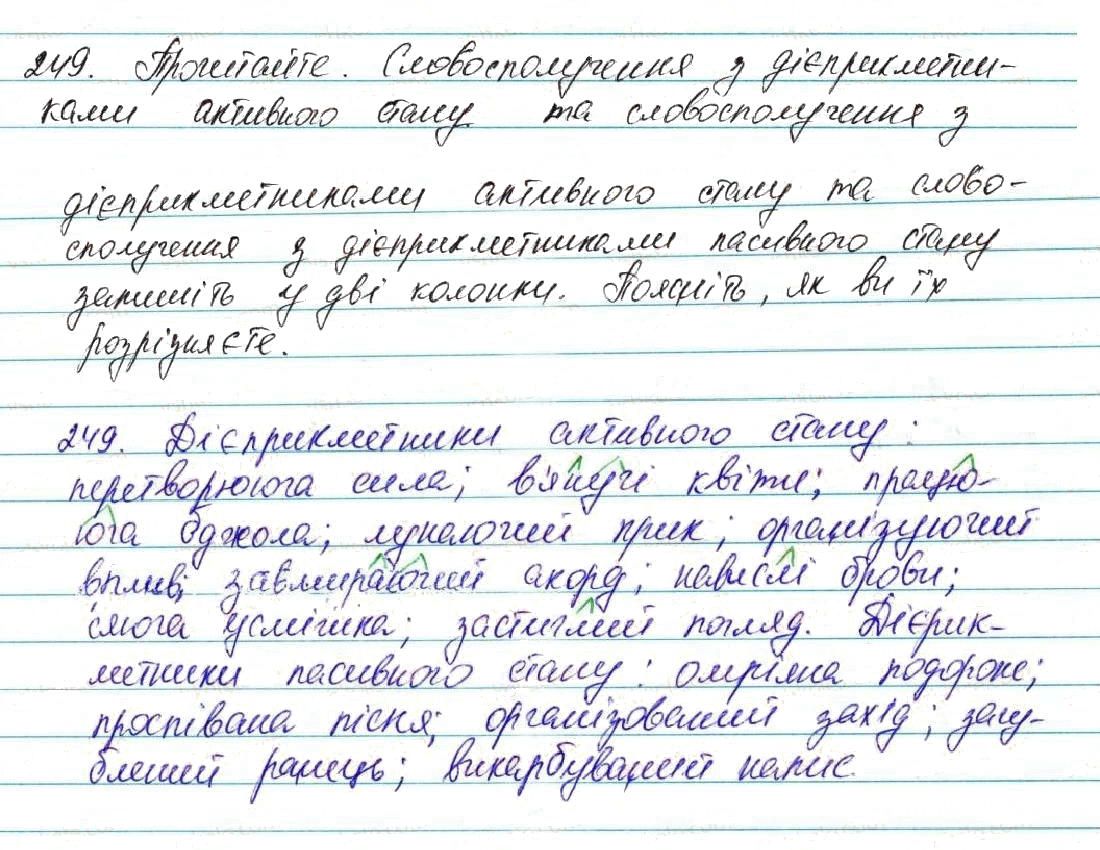 249. Прочитайте. Словосполучення з дієприкметни-
ками активного стану та словосполучення з
дієприкметниками активного стану та слово-
сполучення з дієприкметниками пасивного стану
запишіть у дві колонки. Поясніть, як ви їх
розрізняєте.
249. Дієприкметники активного стану:
перетворююча сила; в'янучі квіти; працю-
юча бджола; лунаючий крик; організуючий
вплив; завмираючий акорд; навислі брови;
сяюча усмішка; застиглий погляд. Дієрик-
метники пасивного стану: омріяна подорож;
проспівана пісня; організований захід; загу-
блений ранець; викарбуваний напис.